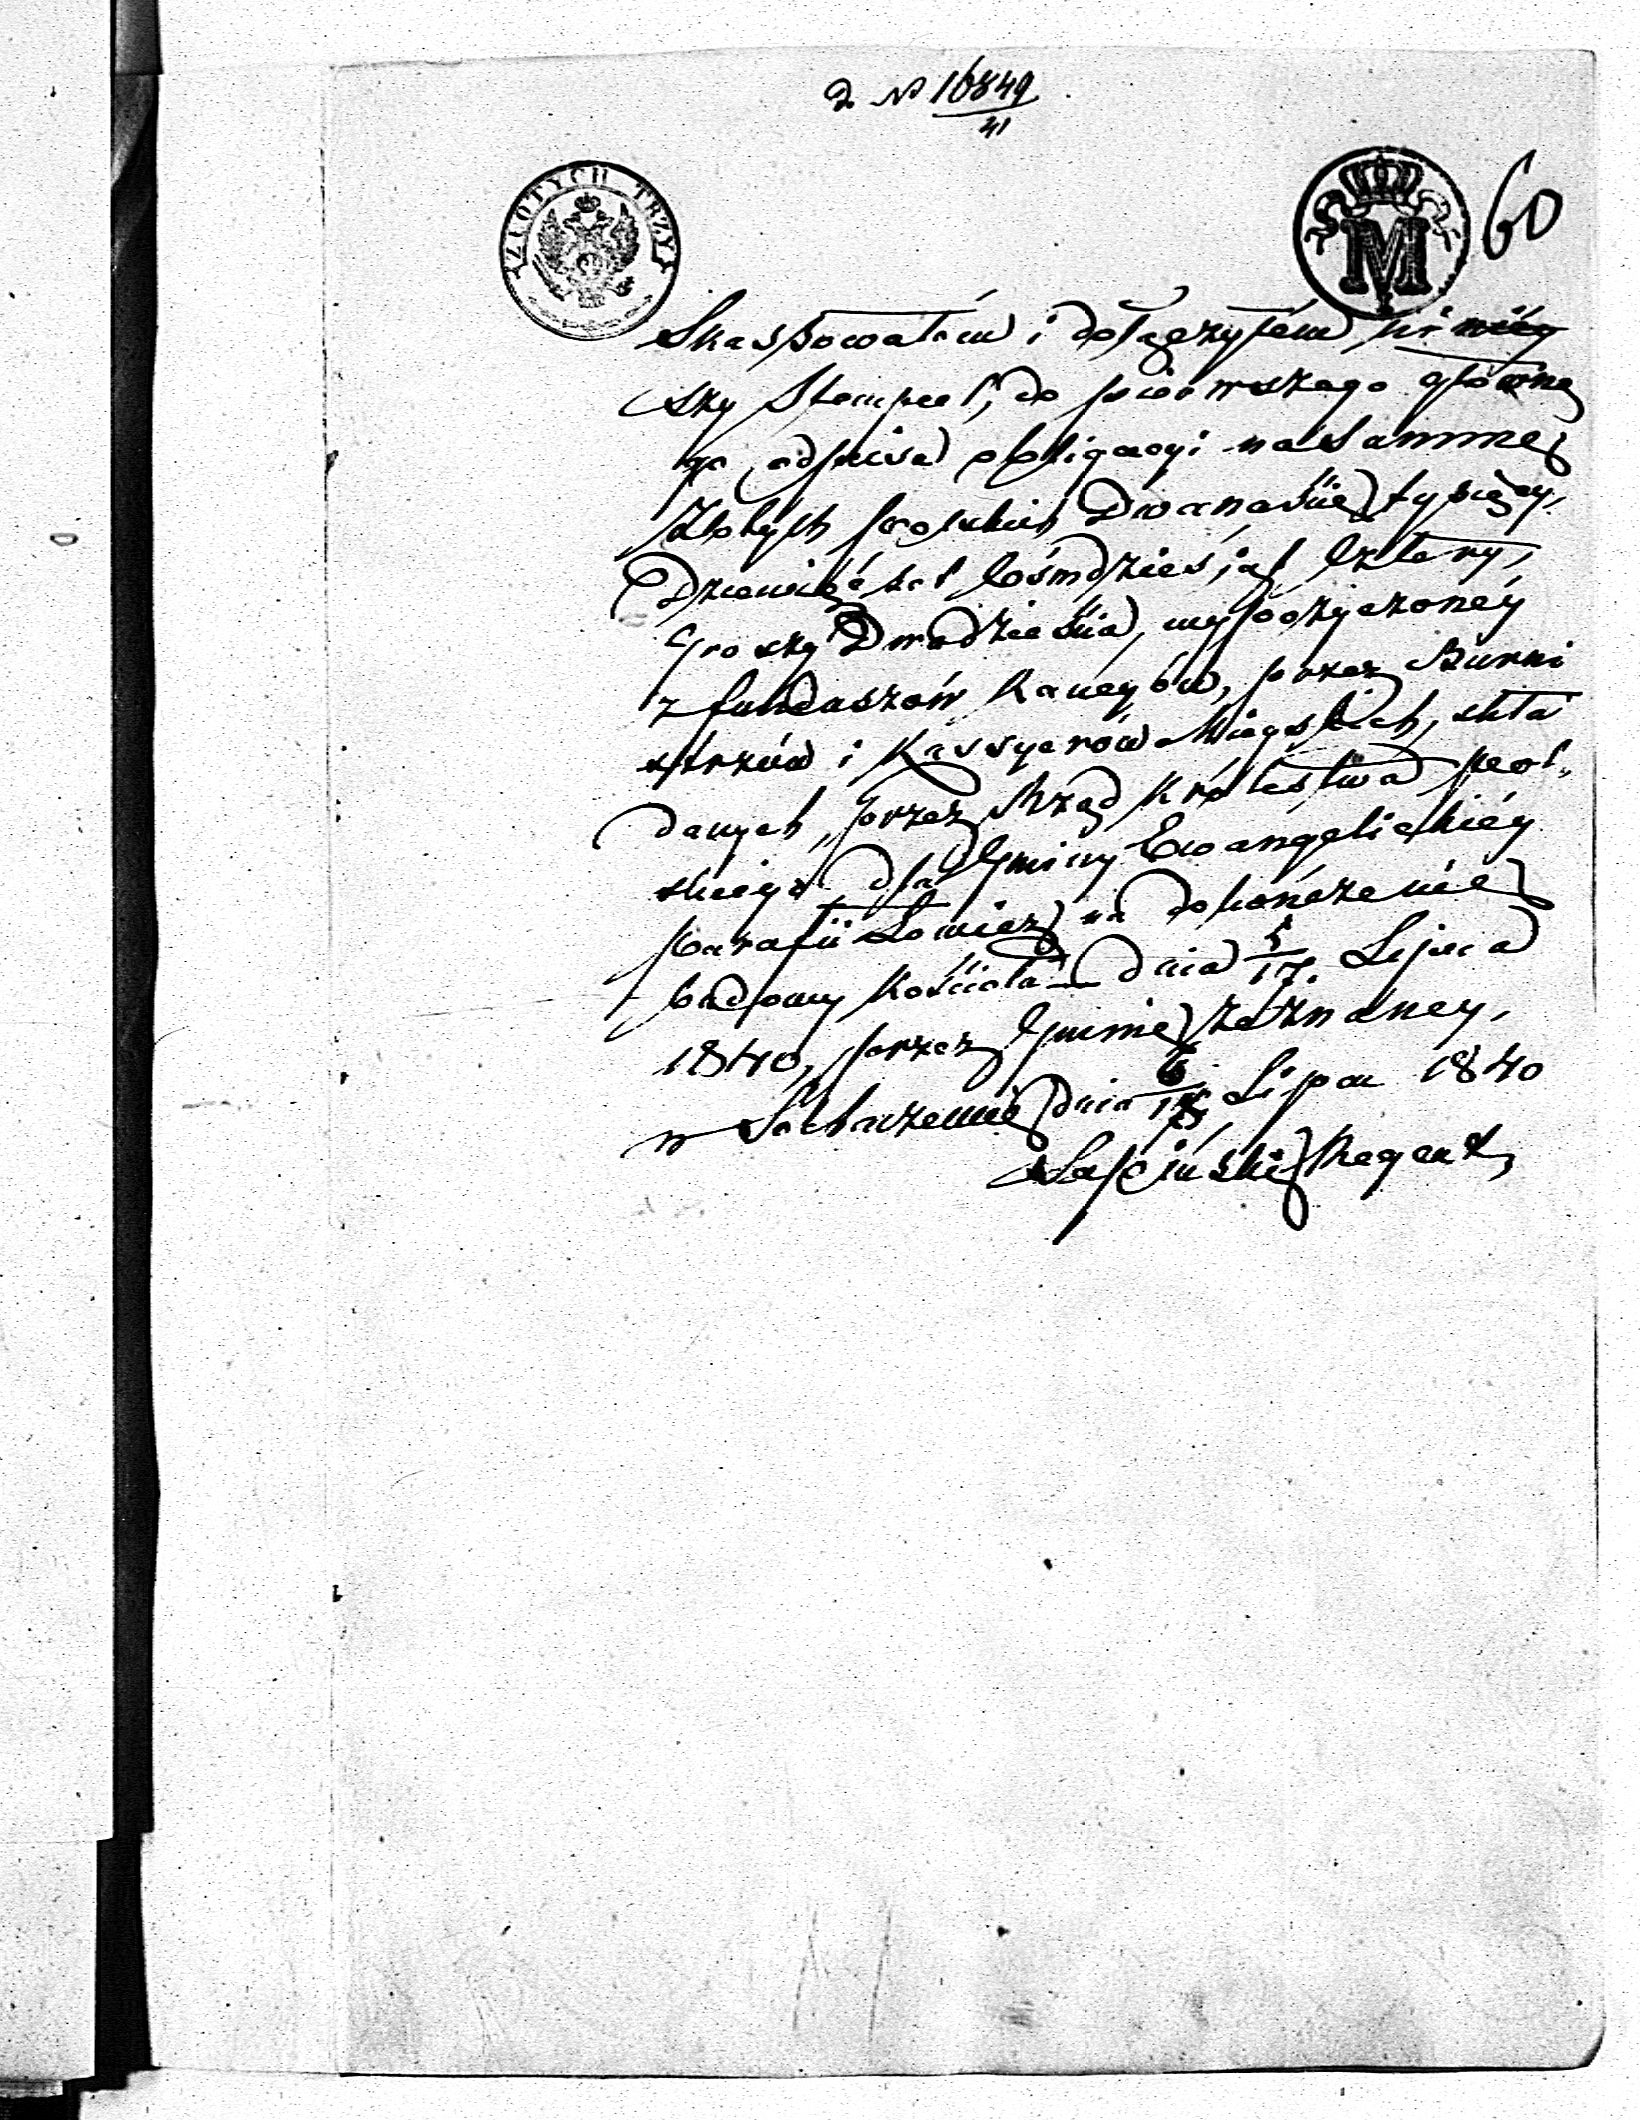 N 16849
41
ZŁOTYCH TRZY
M
60
Skassowałem i dołączyłem
szy Stempel, do pierwszego główne
go odpisu obligacyi na Summę
Złotych polskich Dwanaście tysięcy,
Dziewięćset Ośmdziesiąt Cztery,
Groszy Dwadzieścia, wypożyczonéy
z funduszów Kaucyów, przez Burmi
strzów i Kassyerów Mieyskich, skła
danych, przez Rząd Królestwa Pol„
skiego dla Gminy Ewangelickiéy
Parafii Łowicz na dokończenie
budowy Kościoła — dnia 5/17. Lipca
1840, przez Gminę zeznaney,
w Sochaczewie dnia Lipca 1840
Regent,